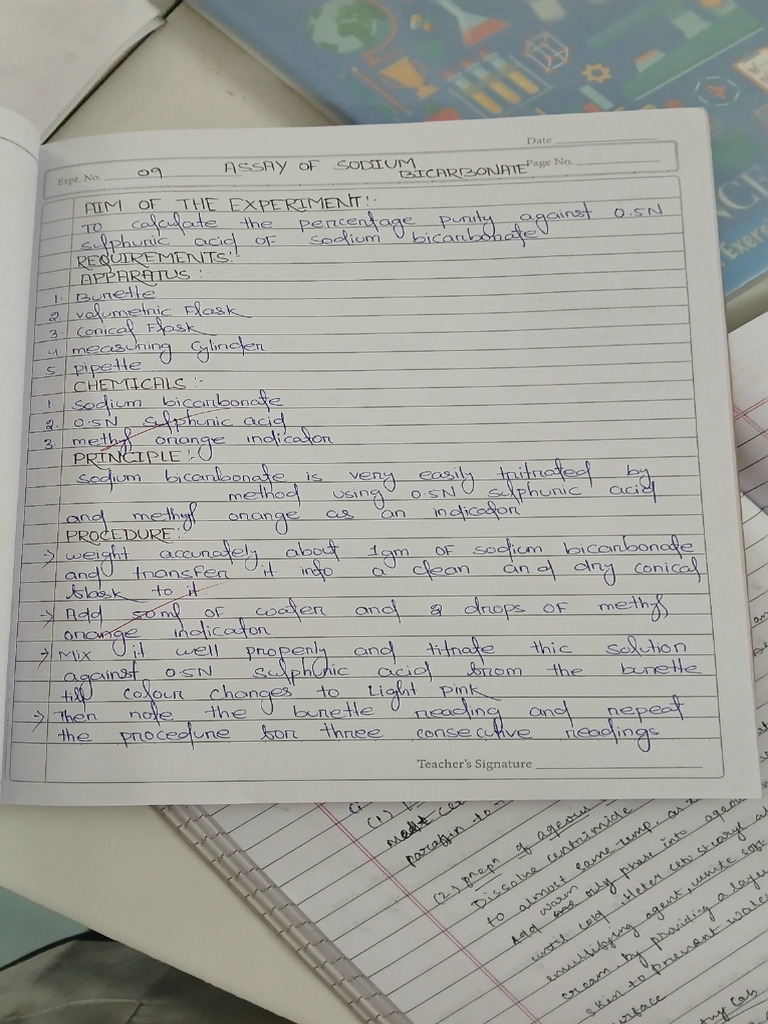 Date
Expt. No. 09 ASSAY OF SODIUM BICARBONATE Page No.
AIM OF THE EXPERIMENT:-
To calculate the percentage purity against 0.5N
sulphuric acid of sodium bicarbonate
REQUIREMENTS:-
APPARATUS :-
1. Burette
2 volumetric Flask
3. conical Flask
4 measuring Cylinder
5 pipette
CHEMICALS :-
1 sodium bicarbonate
2. 0.5N sulphuric acid
3. methyl orange indicator
PRINCIPLE :-
sodium bicarbonate is very easily tritrated by
method using 0.5N sulphuric acid
and methyl orange as an indicator
PROCEDURE:-
→ weight accurately about 1gm of sodium bicarbonate
and transfer it into a clean and dry conical
flask to it
→ Add 50ml of water and 2 drops of methyl
orange indicator
→ Mix it well properly and titrate this solution
against 0.5N sulphuric acid from the burette
till colour changes to Light pink
→ Then note the burette reading and repeat
the procedure for three consecutive readings
Teacher's Signature
NCE
Exer
(1)
paraffin to
(2) prepn of aqueous
Dissolve centrimide
to almost same temp
Add warm oily phase into aqueous
until cold
emulsifying agent, white soft
cream, by providing a layer
skin to prevent water
surface